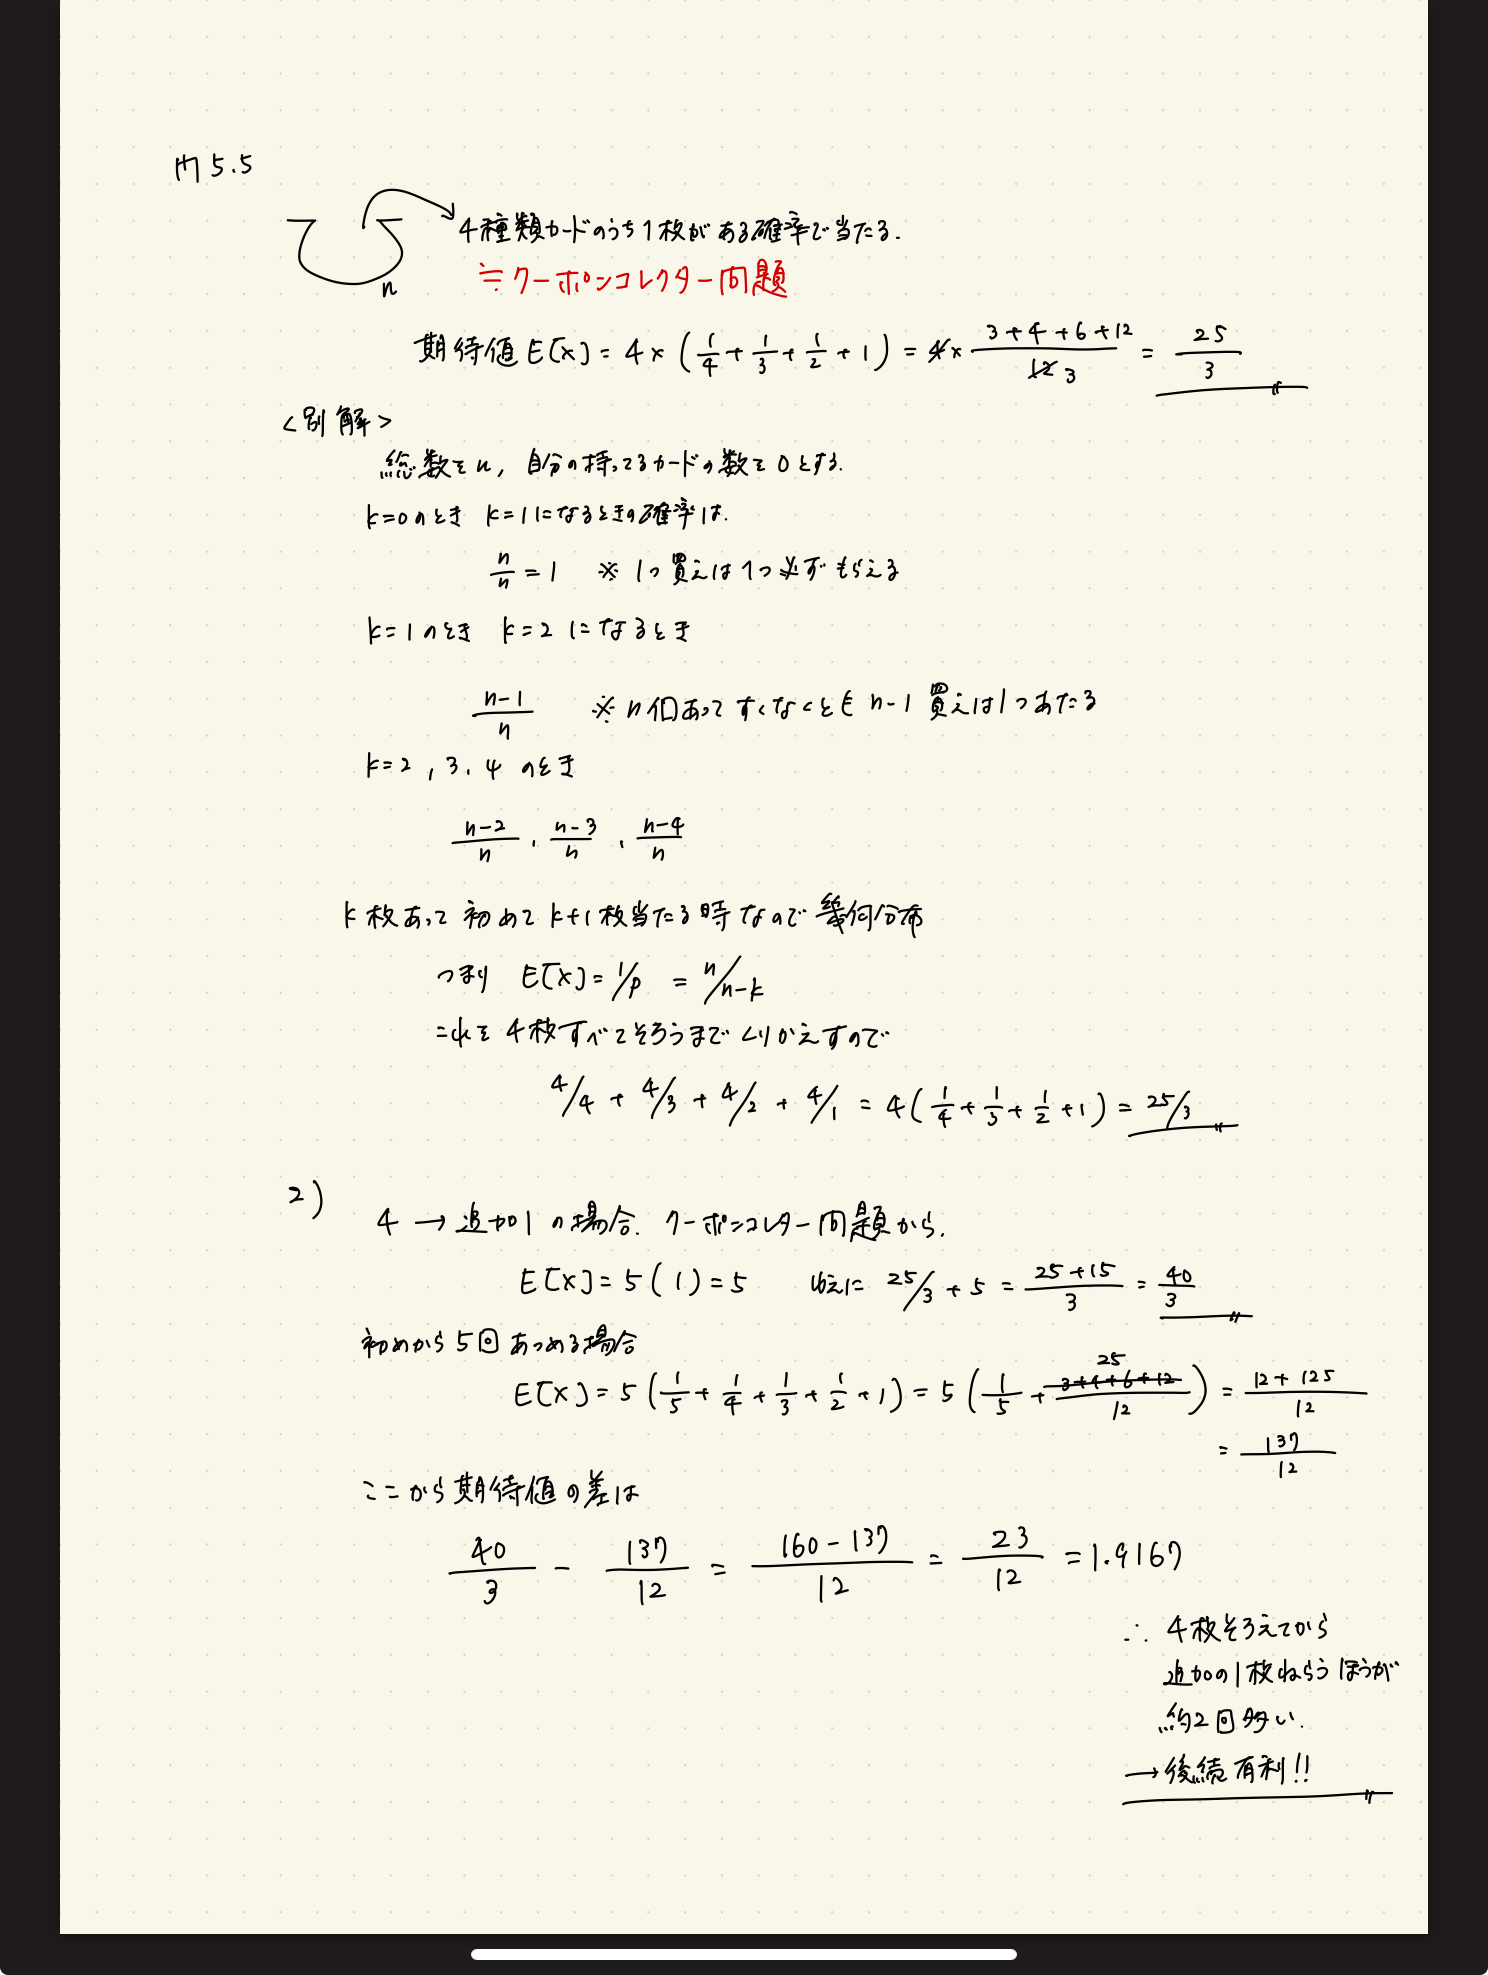 問5.5
4種類カードのうち1枚がある確率で当たる.
n
≒クーポンコレクター問題
期待値 E[x] = 4 × (1/4 + 1/3 + 1/2 + 1) = 4 × (3+4+6+12)/12 3 = 25/3
<別解>
総数を n, 自分の持ってるカードの数を 0 とする.
k=0のとき k=1になるときの確率は.
n/n = 1 ※ 1つ買えば1つ必ずもらえる
k=1のとき k=2になるとき
(n-1)/n ※ n個あってすくなくとも n-1 買えば1つあたる
k=2, 3, 4 のとき
(n-2)/n, (n-3)/n, (n-4)/n
k枚あって初めて k+1枚当たる時なので幾何分布
つまり E[x] = 1/p = n/n-k
これを4枚すべてそろうまでくりかえすので
4/4 + 4/3 + 4/2 + 4/1 = 4(1/4 + 1/3 + 1/2 + 1) = 25/3
2)
4 → 追加1の場合. クーポンコレクター問題から.
E[x] = 5(1) = 5 ゆえに 25/3 + 5 = (25+15)/3 = 40/3
初めから5回あつめる場合
E[x] = 5(1/5 + 1/4 + 1/3 + 1/2 + 1) = 5(1/5 + 25 3+4+6+12/12) = (12+125)/12
= 137/12
ここから期待値の差は
40/3 - 137/12 = (160-137)/12 = 23/12 = 1.9167
∴ 4枚そろえてから
追加の1枚ねらうほうが
約2回多い.
→ 後続有利!!